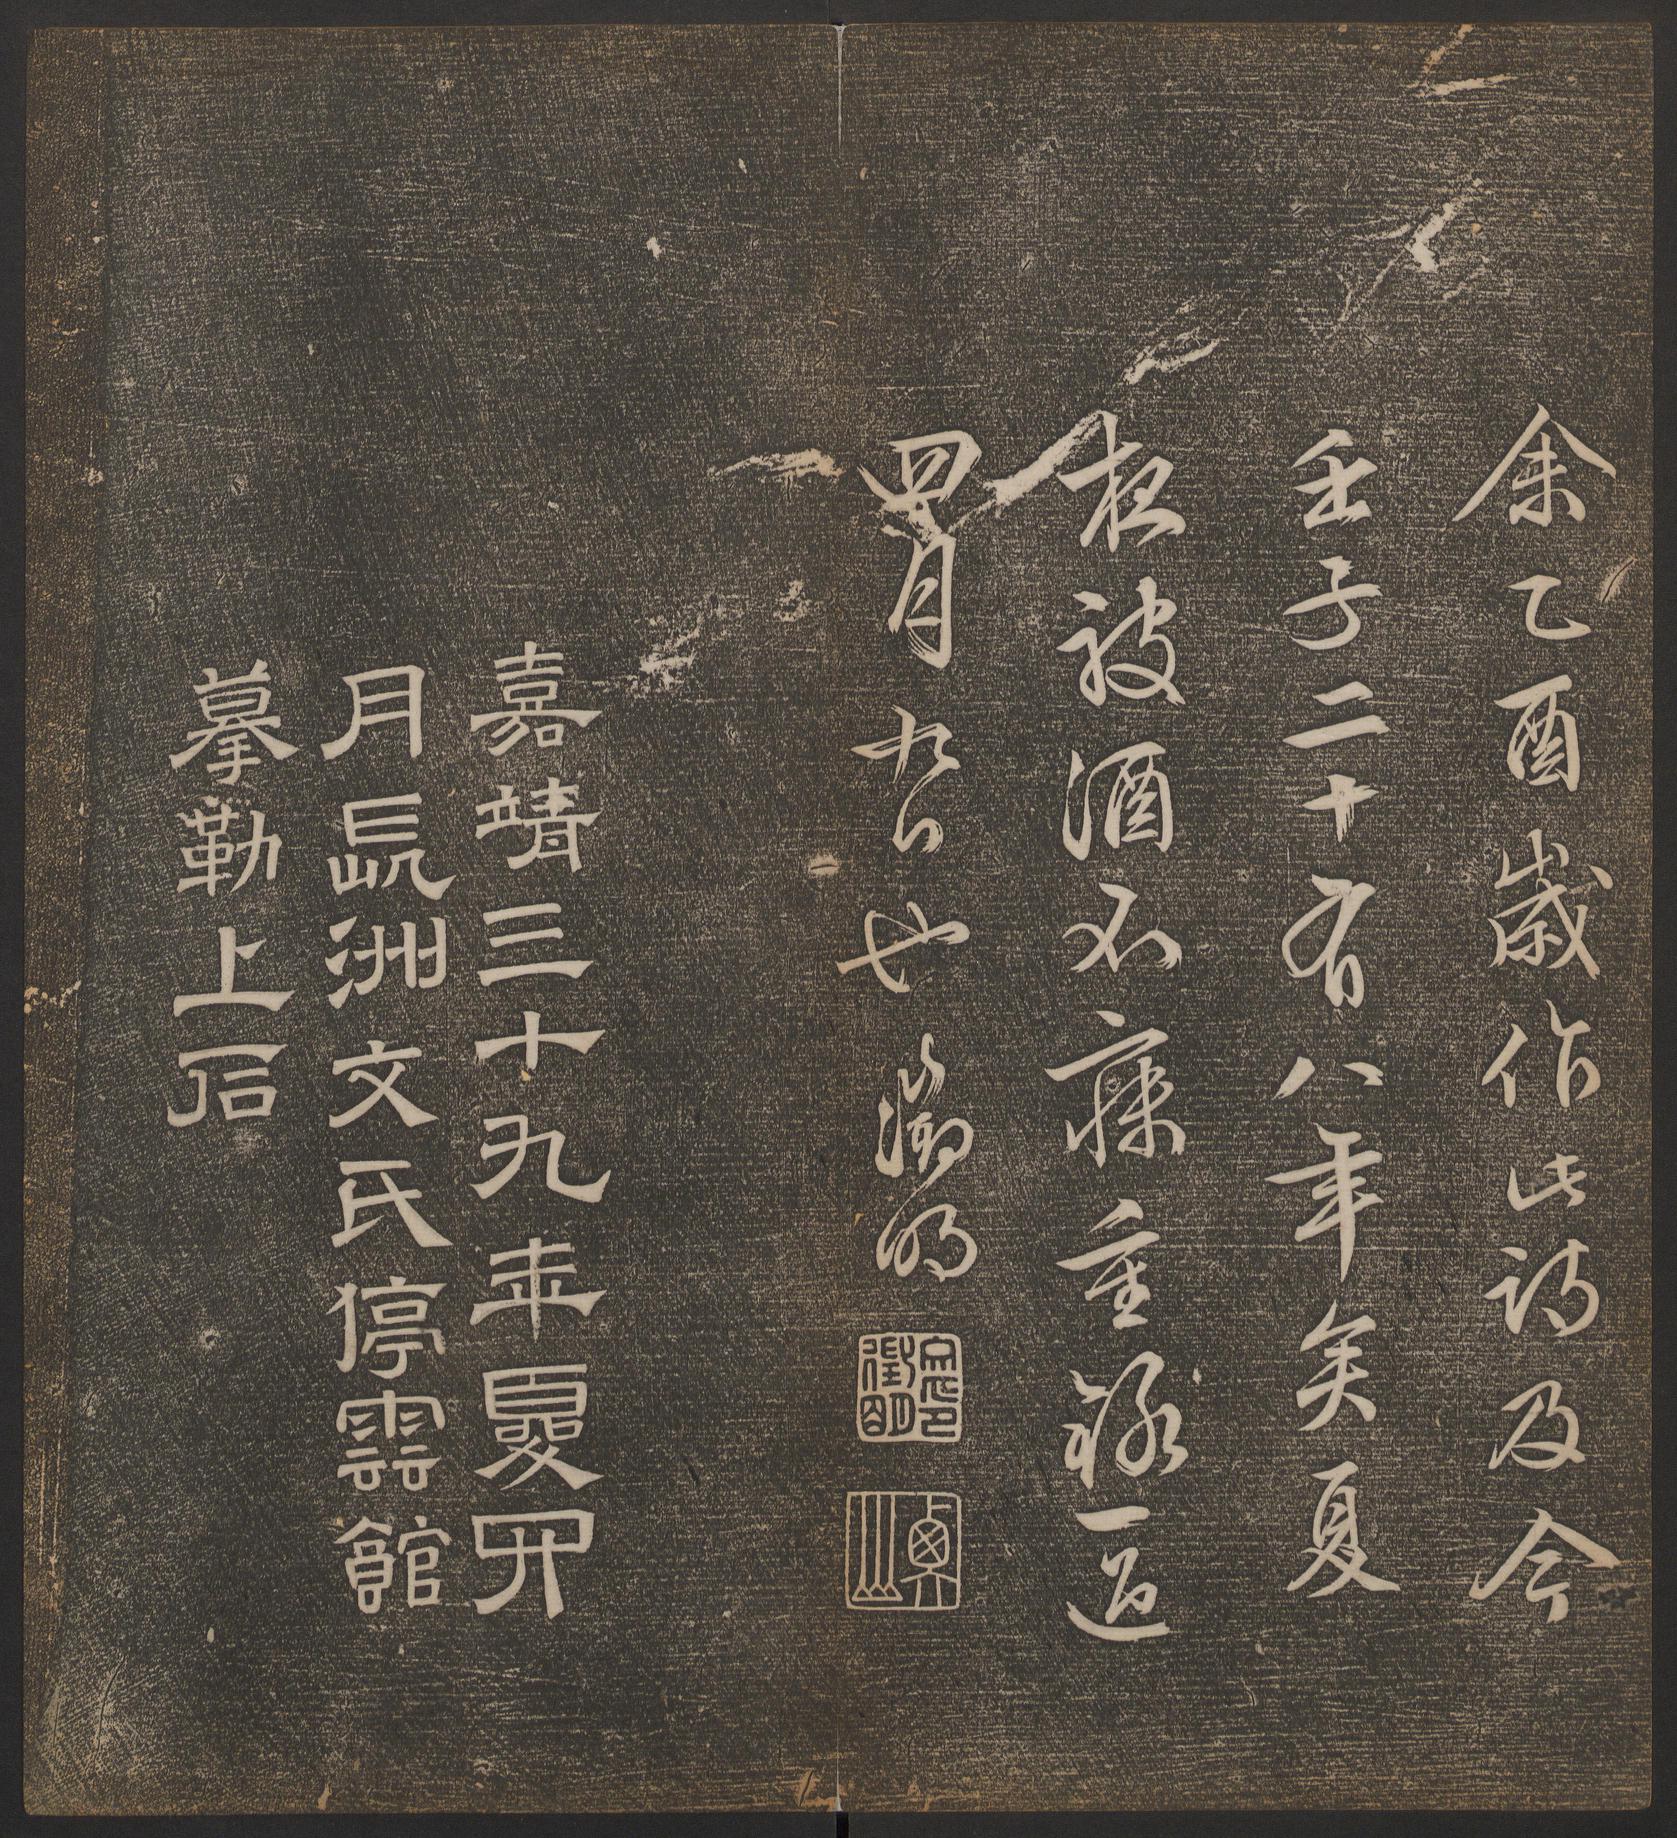 余乙酉歲作此詩及今
壬子二十有八年矣夏
夜被酒不寐重錄一過
四月九日也 徵明
文徵明印
衡山
嘉靖三十九年夏四
月長洲文氏停雲館
摹勒上石